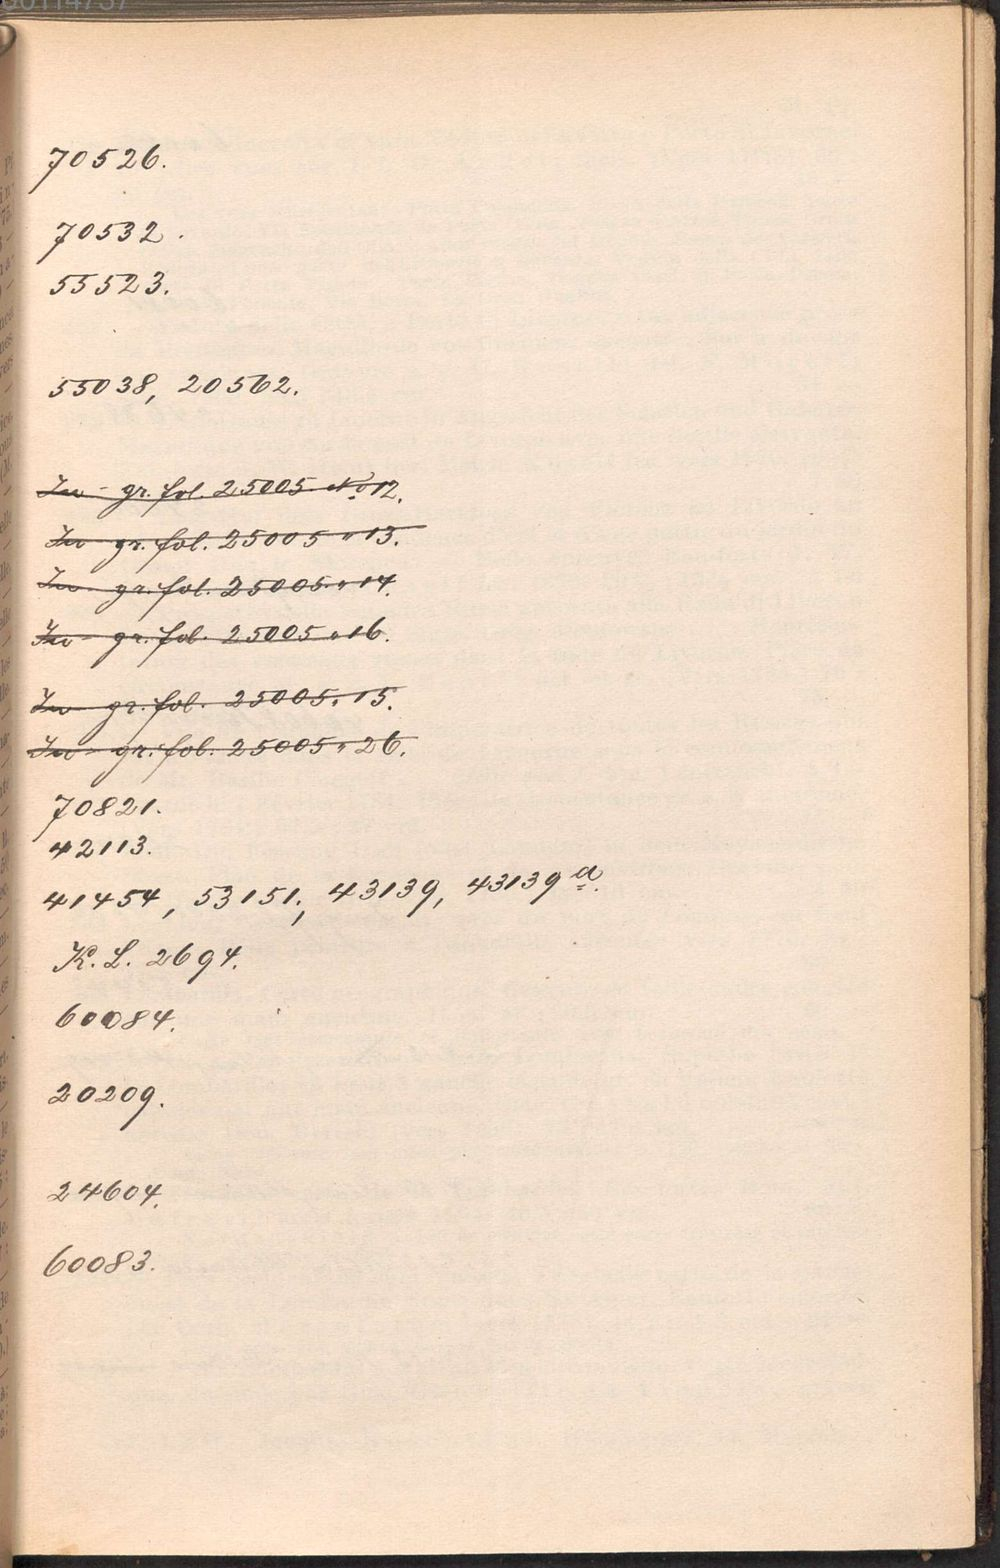 70526.
70532.
55523.
55038, 20562.
In gr. fol. 25005 No 12.
In gr. fol. 25005 " 13.
In gr. fol. 25005 " 14.
In gr. fol. 25005 " 16.
In gr. fol. 25005 " 15.
In gr. fol. 25005 " 26.
70821.
42113.
41454, 53151, 43139, 43139 a.
K. L. 2694.
60084.
20209.
24604.
60083.